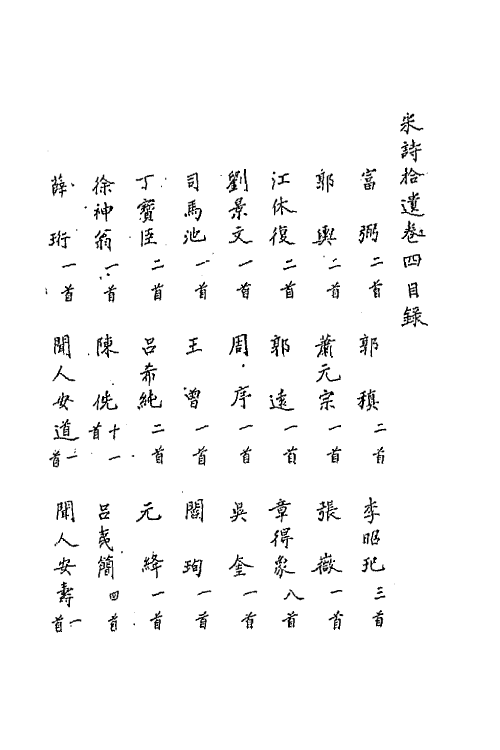 宋詩拾遺卷四目録
富弼二首 郭稹二首 李昭玘三首
郭輿二首 蕭元宗一首 張嶽一首
江休復二首 郭遠一首 章得象八首
劉景文一首 周序一首 吳奎一首
司馬池一首 王曾一首 閻珣一首
丁寶臣二首 呂希純二首 元絳一首
徐神翁一首 陳侁十一首 呂夷簡四首
薛珩一首 聞人安道一首 聞人安壽一首